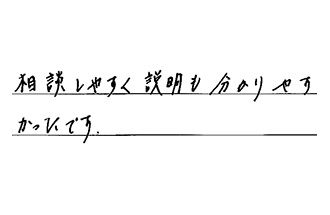 相談しやすく説明も分かりやす
かったです.